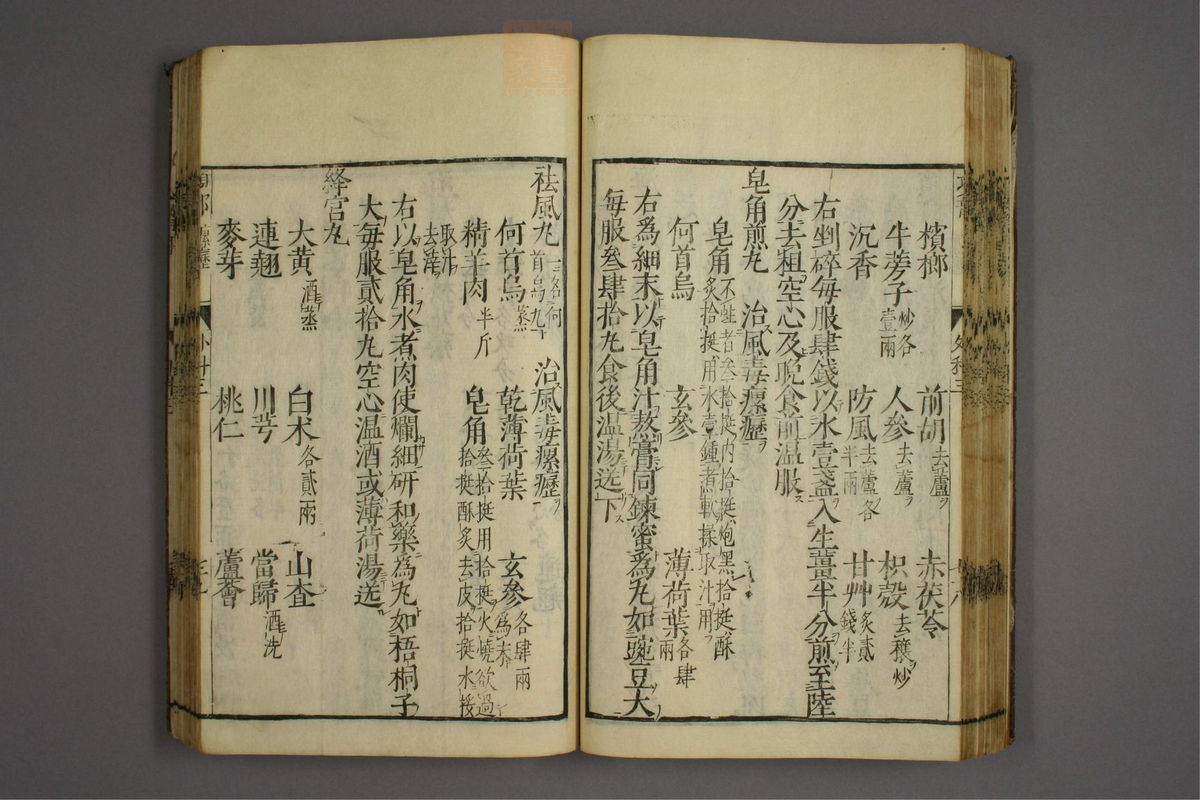 檳榔 前胡去蘆 赤茯苓
牛蒡子炒各壹兩 人參去蘆 枳殼去穰炒
沉香 防風去蘆各半兩 甘艸炙貳錢半
右剉碎每服肆錢以水壹盞入生薑半分煎至陸
分去粗空心及晚食前温服
皂角煎丸 治風毒瘰癧
皂角不蛀者叁拾挺内拾挺炮黑拾挺酥炙拾挺用水壹鍾煮軟揉取汁用
何首烏 玄參 薄荷葉各肆兩
右爲細末以皂角汁熬膏同鍊蜜爲丸如豌豆大
毎服叁肆拾丸食後温湯送下
祛風丸一名何首烏丸 治風毒瘰癧
何首烏蒸 乾薄荷葉 玄參各肆兩爲末
精羊肉半斤 皂角叁拾挺用拾挺火燒欲過拾挺酥炙去皮拾挺水挼
取汁去滓
右以皂角水煮肉使爛細研和藥爲丸如梧桐子
大每服貳拾丸空心温酒或薄荷湯送
絳宮丸
大黃酒蒸 白朮各貳兩 山査
連翹 川芎 當歸酒洗
麥芽 桃仁 蘆薈